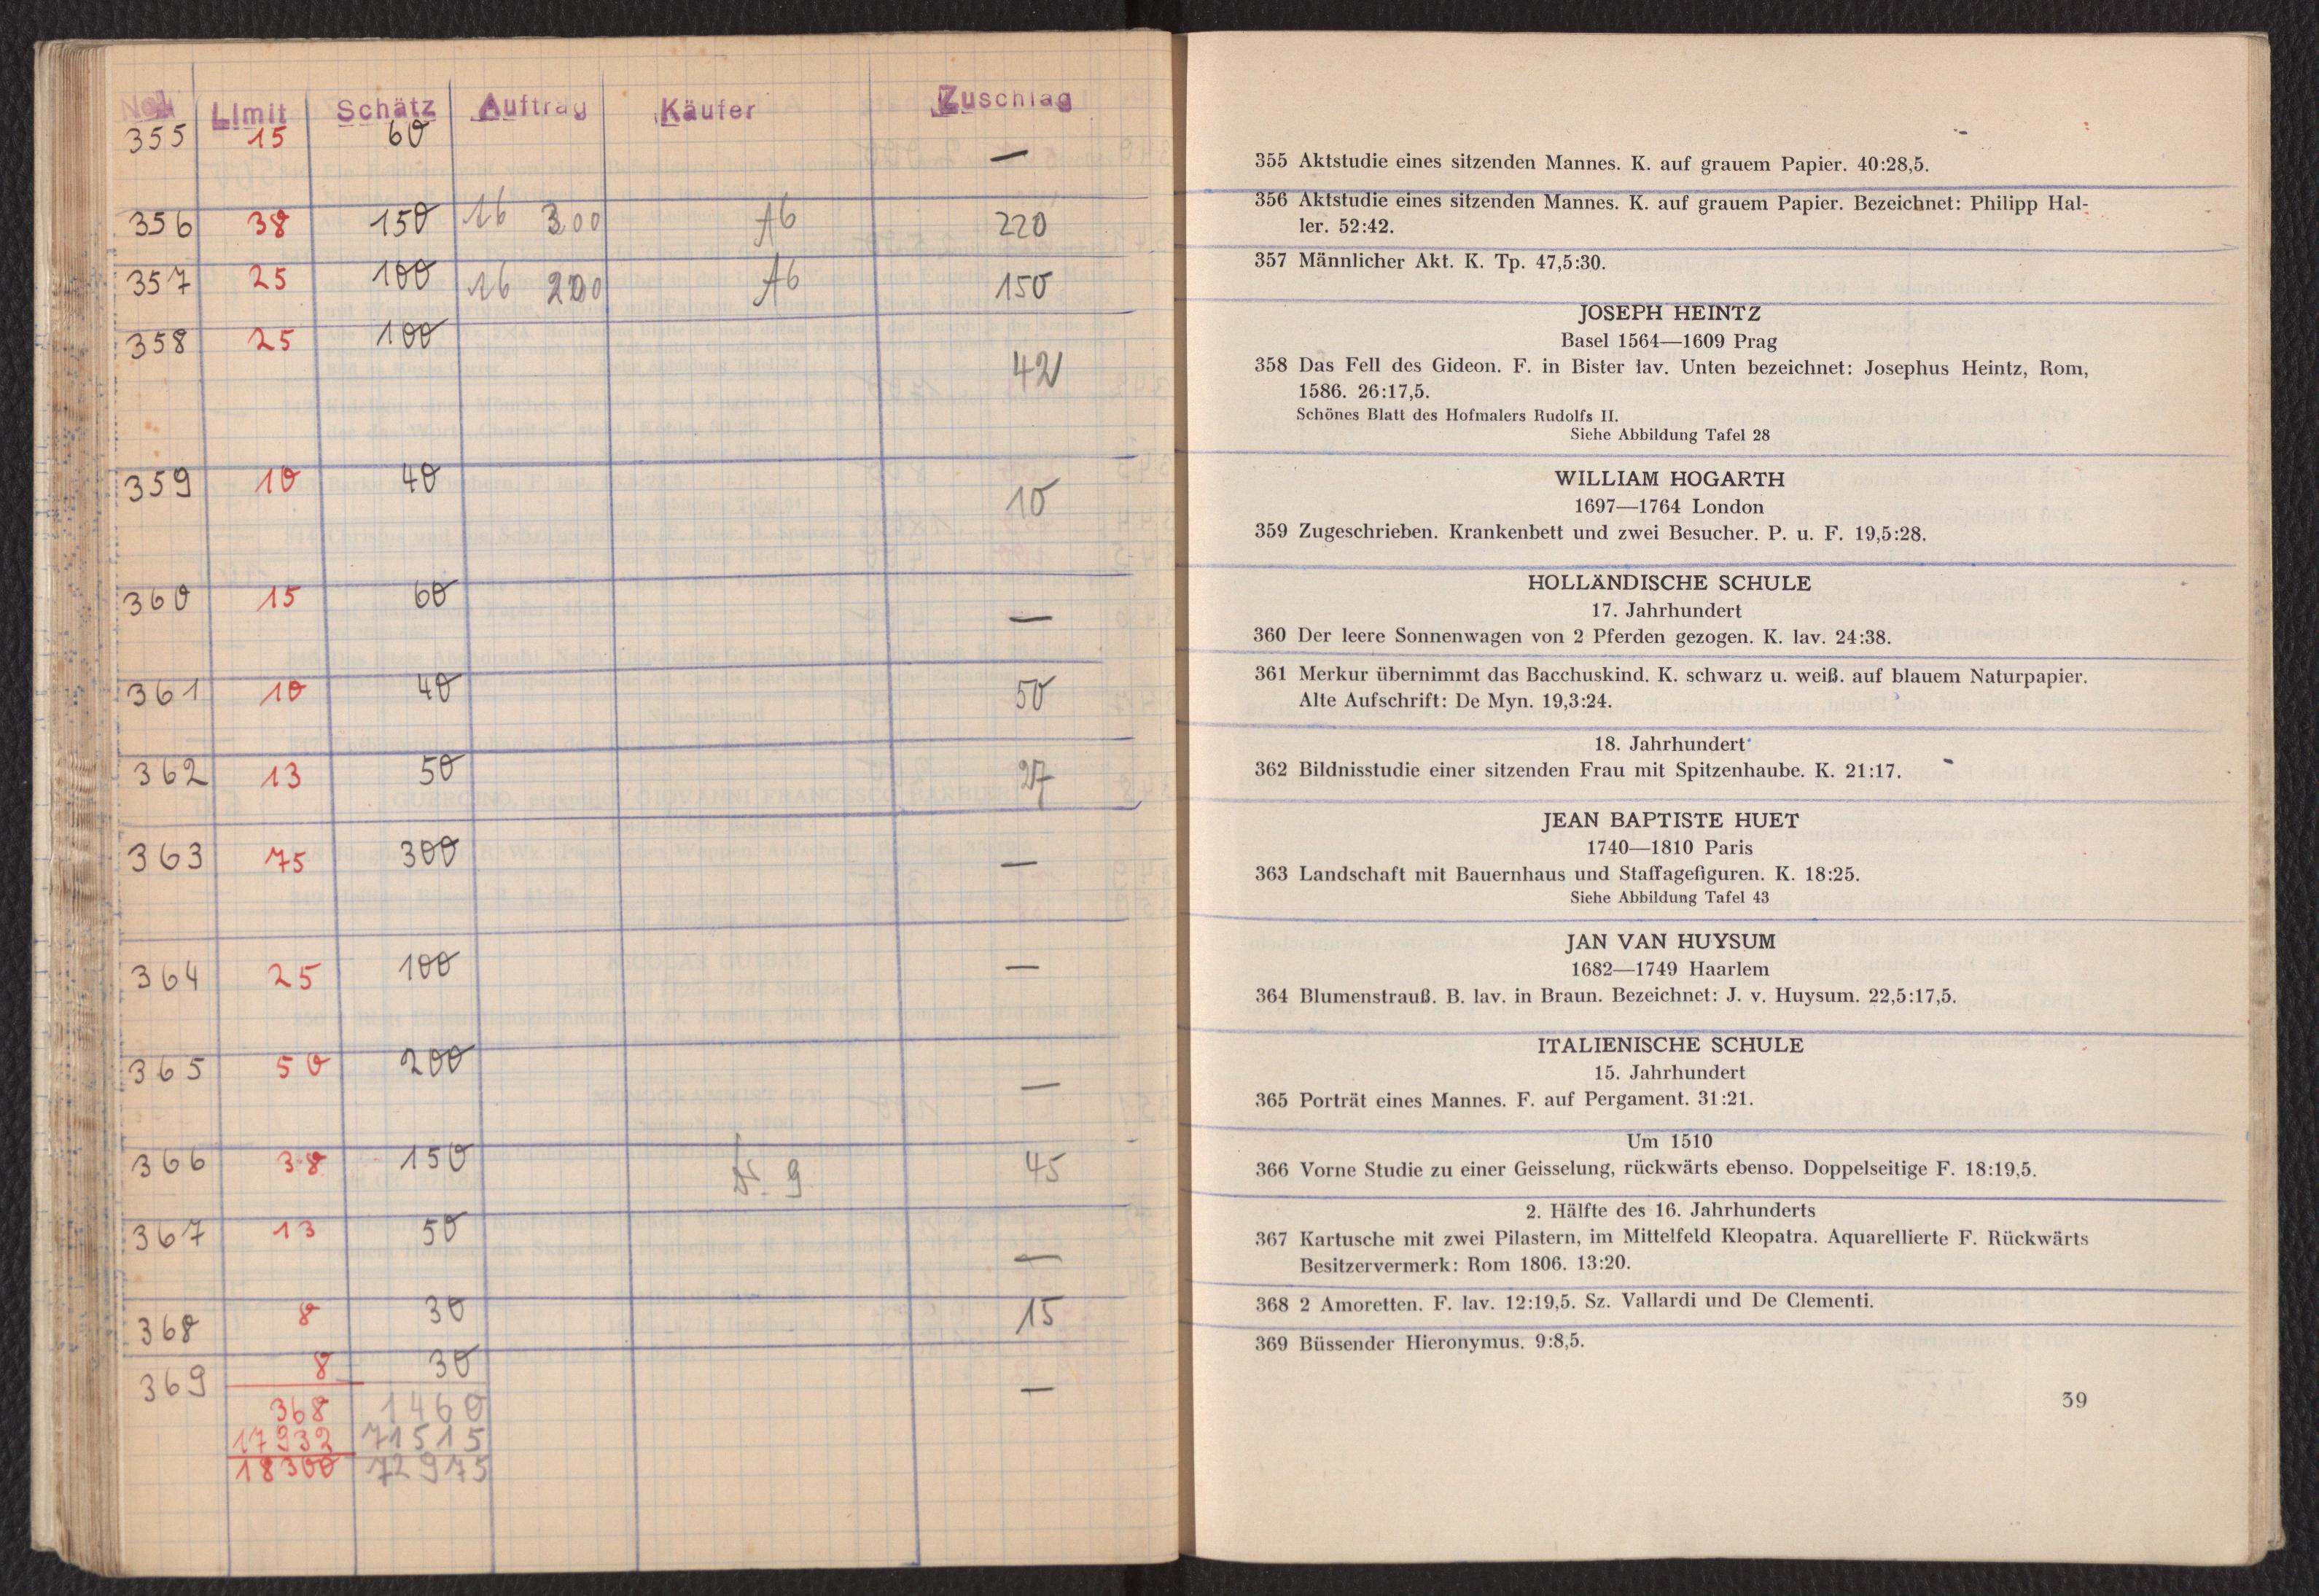 No. Limit Schätz Auftrag Käufer Zuschlag
355 15 60 —
356 38 150 16 300 A6 220
357 25 100 16 200 A6 150
358 25 100 42
359 10 40 10
360 15 60 —
361 10 40 50
362 13 50 27
363 75 300 —
364 25 100 —
365 50 200 —
366 38 150 9 45
367 13 50 —
368 8 30 15
369 8 30 —
368 1460
17932 71515
18300 72975
355 Aktstudie eines sitzenden Mannes. K. auf grauem Papier. 40:28,5.
356 Aktstudie eines sitzenden Mannes. K. auf grauem Papier. Bezeichnet: Philipp Hal-
ler. 52:42.
357 Männlicher Akt. K. Tp. 47,5:30.
JOSEPH HEINTZ
Basel 1564—1609 Prag
358 Das Fell des Gideon. F. in Bister lav. Unten bezeichnet: Josephus Heintz, Rom,
1586. 26:17,5.
Schönes Blatt des Hofmalers Rudolfs II.
Siehe Abbildung Tafel 28
WILLIAM HOGARTH
1697—1764 London
359 Zugeschrieben. Krankenbett und zwei Besucher. P. u. F. 19,5:28.
HOLLÄNDISCHE SCHULE
17. Jahrhundert
360 Der leere Sonnenwagen von 2 Pferden gezogen. K. lav. 24:38.
361 Merkur übernimmt das Bacchuskind. K. schwarz u. weiß. auf blauem Naturpapier.
Alte Aufschrift: De Myn. 19,3:24.
18. Jahrhundert
362 Bildnisstudie einer sitzenden Frau mit Spitzenhaube. K. 21:17.
JEAN BAPTISTE HUET
1740—1810 Paris
363 Landschaft mit Bauernhaus und Staffagefiguren. K. 18:25.
Siehe Abbildung Tafel 43
JAN VAN HUYSUM
1682—1749 Haarlem
364 Blumenstrauß. B. lav. in Braun. Bezeichnet: J. v. Huysum. 22,5:17,5.
ITALIENISCHE SCHULE
15. Jahrhundert
365 Porträt eines Mannes. F. auf Pergament. 31:21.
Um 1510
366 Vorne Studie zu einer Geisselung, rückwärts ebenso. Doppelseitige F. 18:19,5.
2. Hälfte des 16. Jahrhunderts
367 Kartusche mit zwei Pilastern, im Mittelfeld Kleopatra. Aquarellierte F. Rückwärts
Besitzervermerk: Rom 1806. 13:20.
368 2 Amoretten. F. lav. 12:19,5. Sz. Vallardi und De Clementi.
369 Büssender Hieronymus. 9:8,5.
39